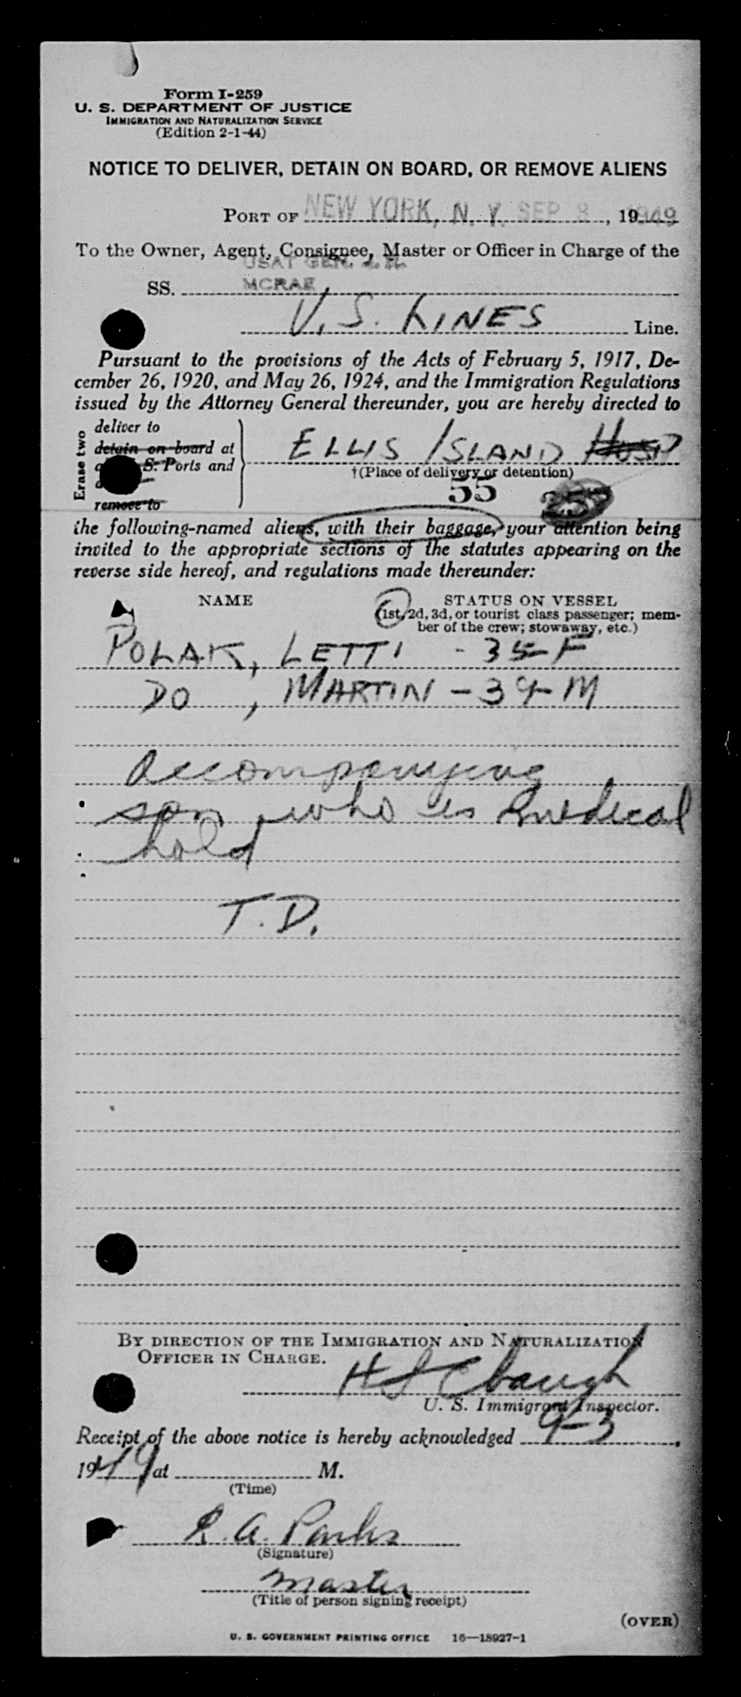 Form I-259
U. S. DEPARTMENT OF JUSTICE
IMMIGRATION AND NATURALIZATION SERVICE
(Edition 2-1-44)
NOTICE TO DELIVER, DETAIN ON BOARD, OR REMOVE ALIENS
PORT OF NEW YORK, N. Y. SEP 3 1949, 19
To the Owner, Agent, Consignee, Master or Officer in Charge of the
USAT GEN. J. H.
SS. MCRAE,
U. S. LINES Line.
Pursuant to the provisions of the Acts of February 5, 1917, De-
cember 26, 1920, and May 26, 1924, and the Immigration Regulations
issued by the Attorney General thereunder, you are hereby directed to
Erase two
deliver to
detain on board at
S. Ports and
remove to
ELLIS ISLAND HOSP
†(Place of delivery or detention)
55 257
the following-named aliens, with their baggage, your attention being
invited to the appropriate sections of the statutes appearing on the
reverse side hereof, and regulations made thereunder:
NAME
STATUS ON VESSEL
(1st, 2d, 3d, or tourist class passenger; mem-
ber of the crew; stowaway, etc.)
POLAK, LETTI - 35-F
DO, MARTIN - 39-M
Accompanying
son, who is medical
hold
T. D.
BY DIRECTION OF THE IMMIGRATION AND NATURALIZATION
OFFICER IN CHARGE.
U. S. Immigrant Inspector.
Receipt of the above notice is hereby acknowledged 9-3,
1949 at M.
(Time)
R. A. Parks
(Signature)
Master
(Title of person signing receipt)
(OVER)
U. S. GOVERNMENT PRINTING OFFICE 16—18927-1